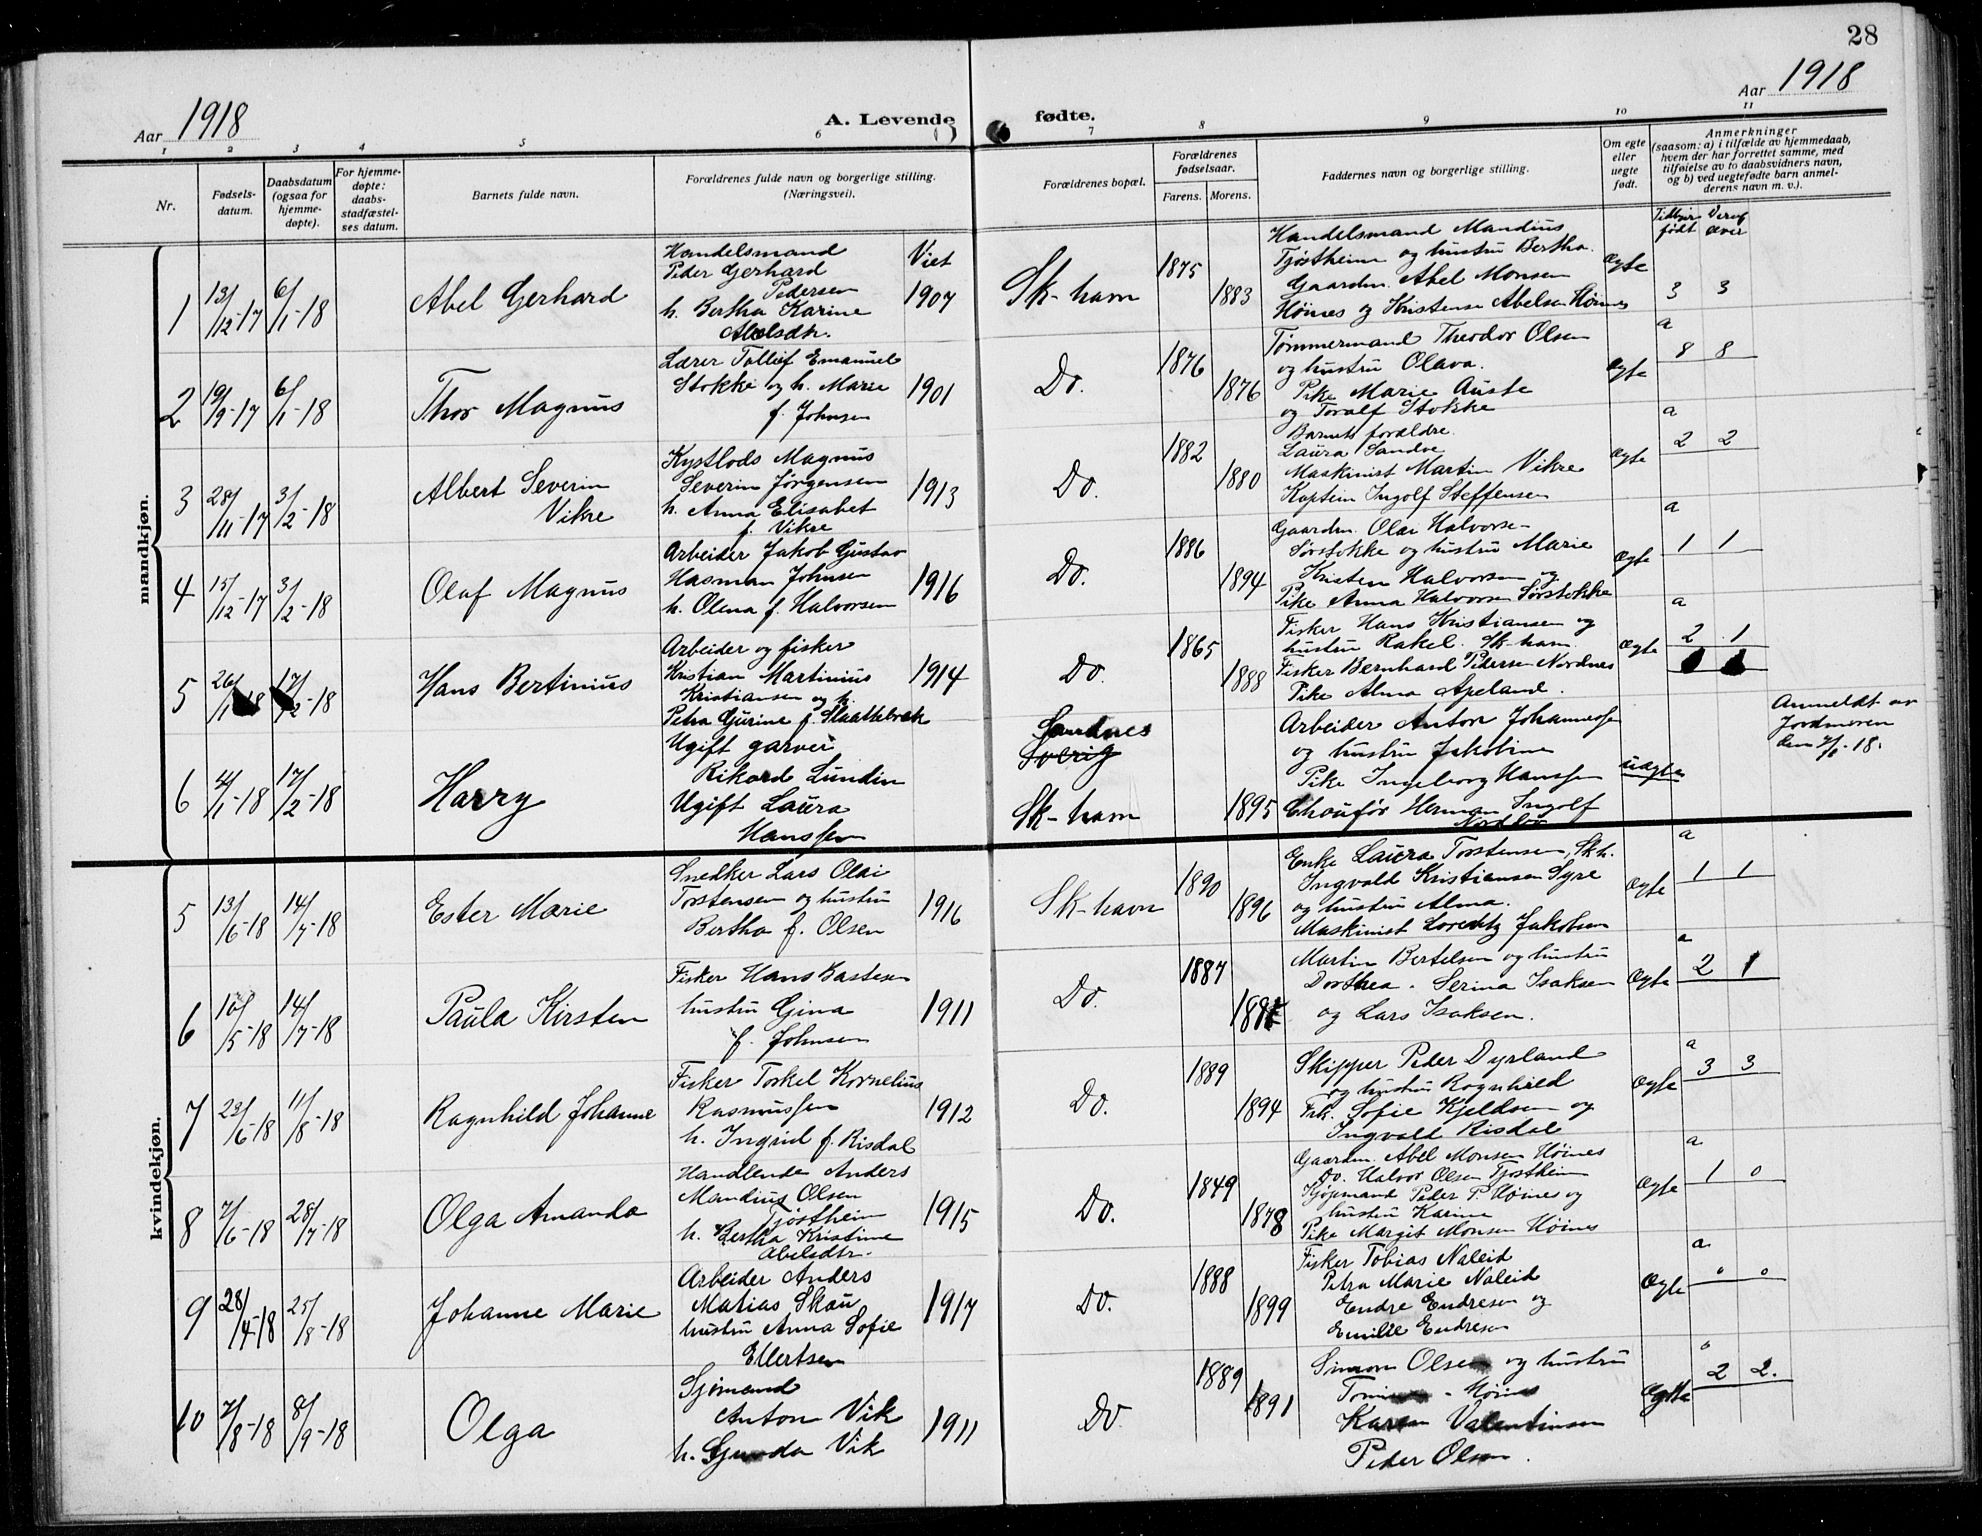 28
Aar 1918
A. Levende fødte.
Aar 1918
1 2 3 4 5 6 7 8 9 10 11
Nr.
Fødsels-
datum.
Daabsdatum
(ogsaa for
hjemme-
døpte).
For hjemme-
døpte:
daabs-
stadfæstel-
ses datum.
Barnets fulde navn.
Forældrenes fulde navn og borgerlige stilling.
(Næringsvei).
Forældrenes bopæl.
Forældrenes
fødselsaar.
Farens. Morens.
Faddernes navn og borgerlige stilling.
Om egte
eller
uegte
født.
Anmerkninger
(saasom: a) i tilfælde av hjemmedaab,
hvem der har forrettet samme, med
tilføielse av to daabsvidners navn,
og b) ved uegtefødte barn anmel-
derens navn m. v.).
født
mandkjøn.
1 13/12-17 6/1-18 Abel Gerhard
Handelsmand
Peder Gerhard
Pedersen
h. Bertha Karine
Abelsdtr.
Viet
1907
Sk-havn
1875
1883
Handelsmand Mandius
Tjøstheim og hustru Bertha.
Gaardm. Abel Monsen
Høines og Kristense Abelsen Høines
Ægte
3 3
2 19/9-17 6/1-18 Thor Magnus
Lærer Tollef Emanuel
Stokke og h. Marie
f. Johnsen
1901
Do.
1876
1876
Tømmermand Theodor Olsen
og hustru Olava.
Pike Marie Auste
og Toralf Stokke
Ægte
a
8 8
3 28/11-17 3/2-18 Albert Severin
Vikre
Kystlods Magnus
Severin Jørgensen
h. Anna Elisabet
f. Vikre
1913
Do.
1882
1880
Barnets forældre.
Laura Sandve
Maskinist Martin Vikre
Kaptein Ingolf Steffensen
Ægte
a
2 2
4 15/12-17 3/2-18 Olaf Magnus
Arbeider Jakob Gustav
Hasman Johnsen
h. Olena f. Halvorsen
1916
Do.
1886
1894
Gaardm. Olai Halvorse-
Sørstokke og hustru Marie
Kristen Halvorsen og
Pike Anna Halvorsen Sørstokke
Ægte
a
1 1
5 26/1-18 17/2-18 Hans Bertinius
Arbeider og fisker
Kristian Martinius
Kristiansen og h.
Petra Gurine f. Slaattebræk
1914
Do.
1865
1888
Fisker Hans Kristiansen og
hustru Rakel. Sk-havn.
Fisker Bernhard Pedersen Nordnes
Pike Alma Apeland.
Ægte
a
2 1
6 4/1-18 17/2-18 Harry
Ugift garver
Rikard Lundin
Ugift Laura
Hanssen
Sandnes
Sverig
Sk-havn
1895
Arbeider Anton Johannessen
og hustru Jakobine
Pike Ingeborg Hanssen
Chauffør Herman Ingolf
Nordbø
uægte
Anmeldt av
Jordmoren
kvindekjøn.
5 13/6-18 14/7-18 Ester Marie
Snedker Lars Olai
Torstensen og hustru
Bertha f. Olsen
1916
Sk-havn
1890
1896
Enke Laura Torstensen, Sk.h.
Ingvald Kristiansen Syre
og hustru Alma.
Maskinist Lorentz Jakobsen
Ægte
a
1 1
6 16/5-18 14/7-18 Paula Kirsten
Fisker Hans Bastesen
hustru Gina
f. Johnsen
1911
Do.
1887
Martin Bertelsen og hustru
Dorthea. Serina Isaksen
og Lars Isaksen.
Ægte
a
2 1
7 23/6-18 11/8-18 Ragnhild Johanne
Fisker Torkel Kornelius
Rasmussen
h. Ingrid f. Risdal
1912
Do.
1889
1894
Skipper Peder Dyrland
og hustru Ragnhild
Frk. Sofie Kjeldsen og
Ingvald Risdal
Ægte
a
3 3
8 7/6-18 28/7-18 Olga Amanda
Handlende Anders
Mandius Olsen
Tjøstheim
h. Bertha Kristine
Abelsdtr.
1915
Do.
1849
1878
Gaardm. Abel Monsen Høines
Do. Halvor Olsen Tjøstheim
Kjøpmand Peder P. Høines og
hustru Karine
Pike Margit Monsen Høines
Ægte
a
1 0
9 28/4-18 25/8-18 Johanne Marie
Arbeider Anders
Matias Skau
hustru Anna Sofie
Ellertsen
1917
Do.
1888
1899
Fisker Tobias Naleid
Petra Marie Naleid
Endre Endresen og
Emilie Endresen
Ægte
a
0 0
10 7/8-18 8/9-18 Olga
Sjømand
Anton Vik
h. Gunda Vik
1911
Do
1889
1891
Simon Olsen og hustru
Høines
Karen Valentinsen
Peder Olsen.
Ægte
2 2.